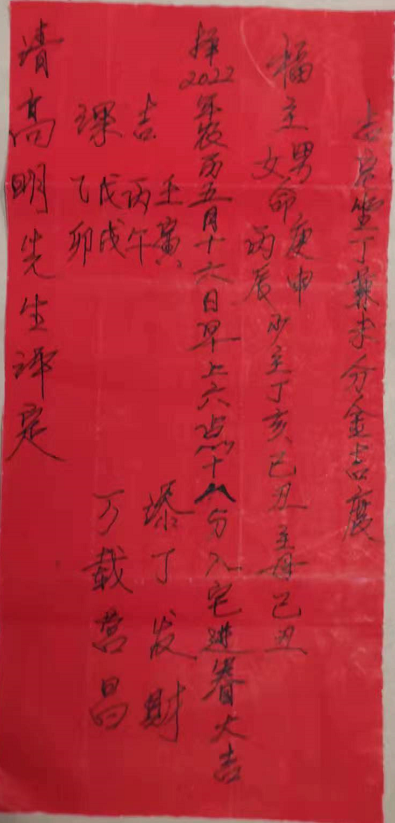 吉宅坐丁兼未分金吉度
福主男命庚申
女命丙辰少主丁亥己丑主母己丑
择2022年农历五月十六日早上六点十八分入宅进眷大吉
吉 壬寅 丙午
课 戊戌 乙卯
添丁发财
万载昌
请高明先生评定